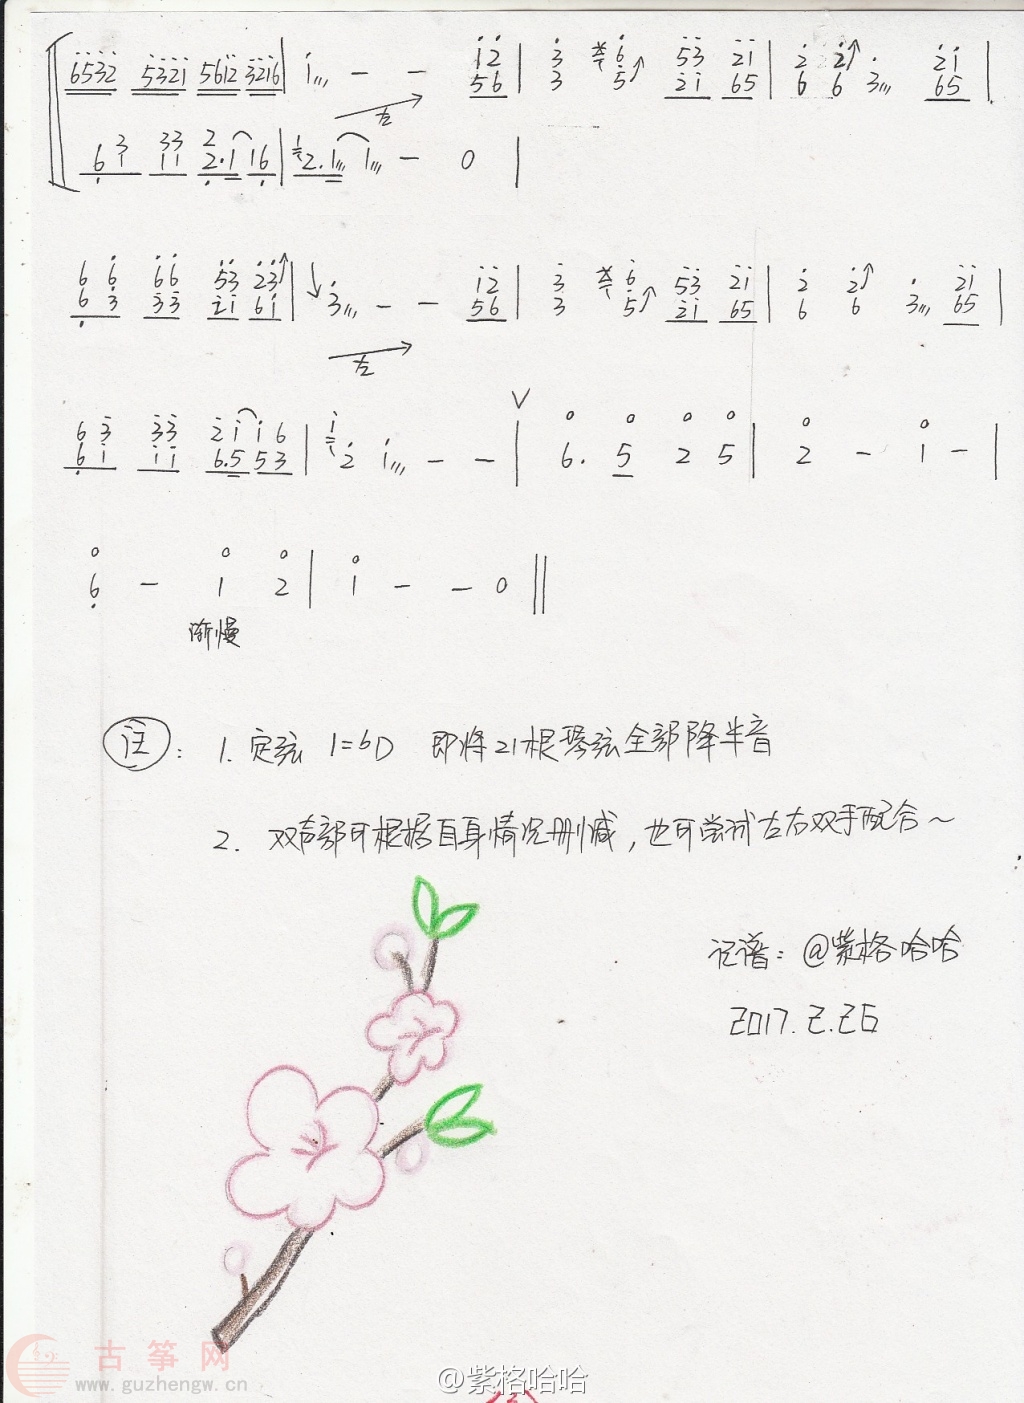 6532 5321 5612 3216 | 1 - - 12 | 3 6 53 21 | 2 2 3 21 |
56 3 5 21 65 6 6 65
左
3 33 2
6 1 11 2·1 16 | 2·1 1 - 0 |
6 6 66 53 23 | 3 - - 12 | 3 6 53 21 | 2 2 3 21 |
6 3 33 21 61 56 3 5 21 65 6 6 65
左
6 3 33 21 16 | 1 2 1 - - | V
6 1 11 6.5 53 6. 5 2 5 | 2 - 1 - |
6 - 1 2 | 1 - - 0 ||
渐慢
注: 1. 定弦 1=bD 即将21根琴弦全部降半音
2. 双声部可根据自身情况删减,也可尝试左右双手配合~
记谱: @紫格哈哈
2017.2.26
古筝网
www.guzhengw.cn
@紫格哈哈